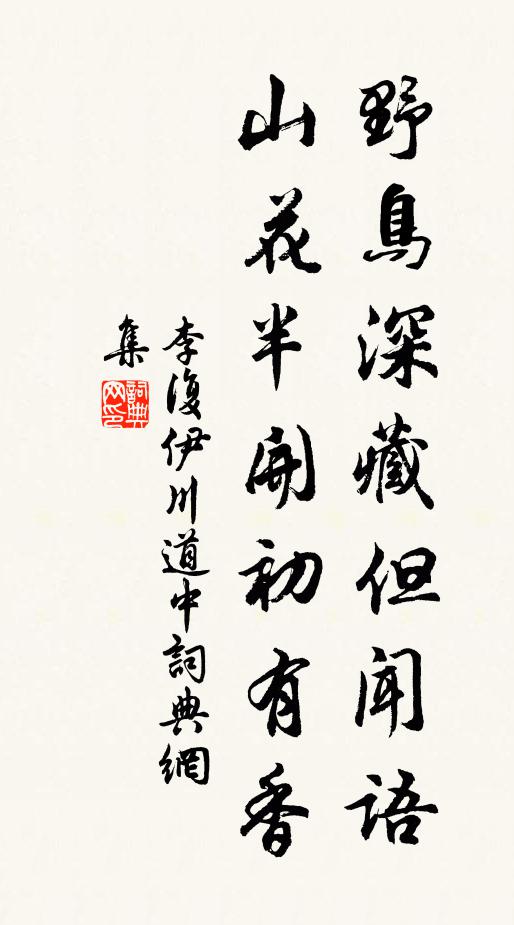 野鳥深藏但聞語
山花半開初有香
李復伊川道中詞典網
集
詞典
网印